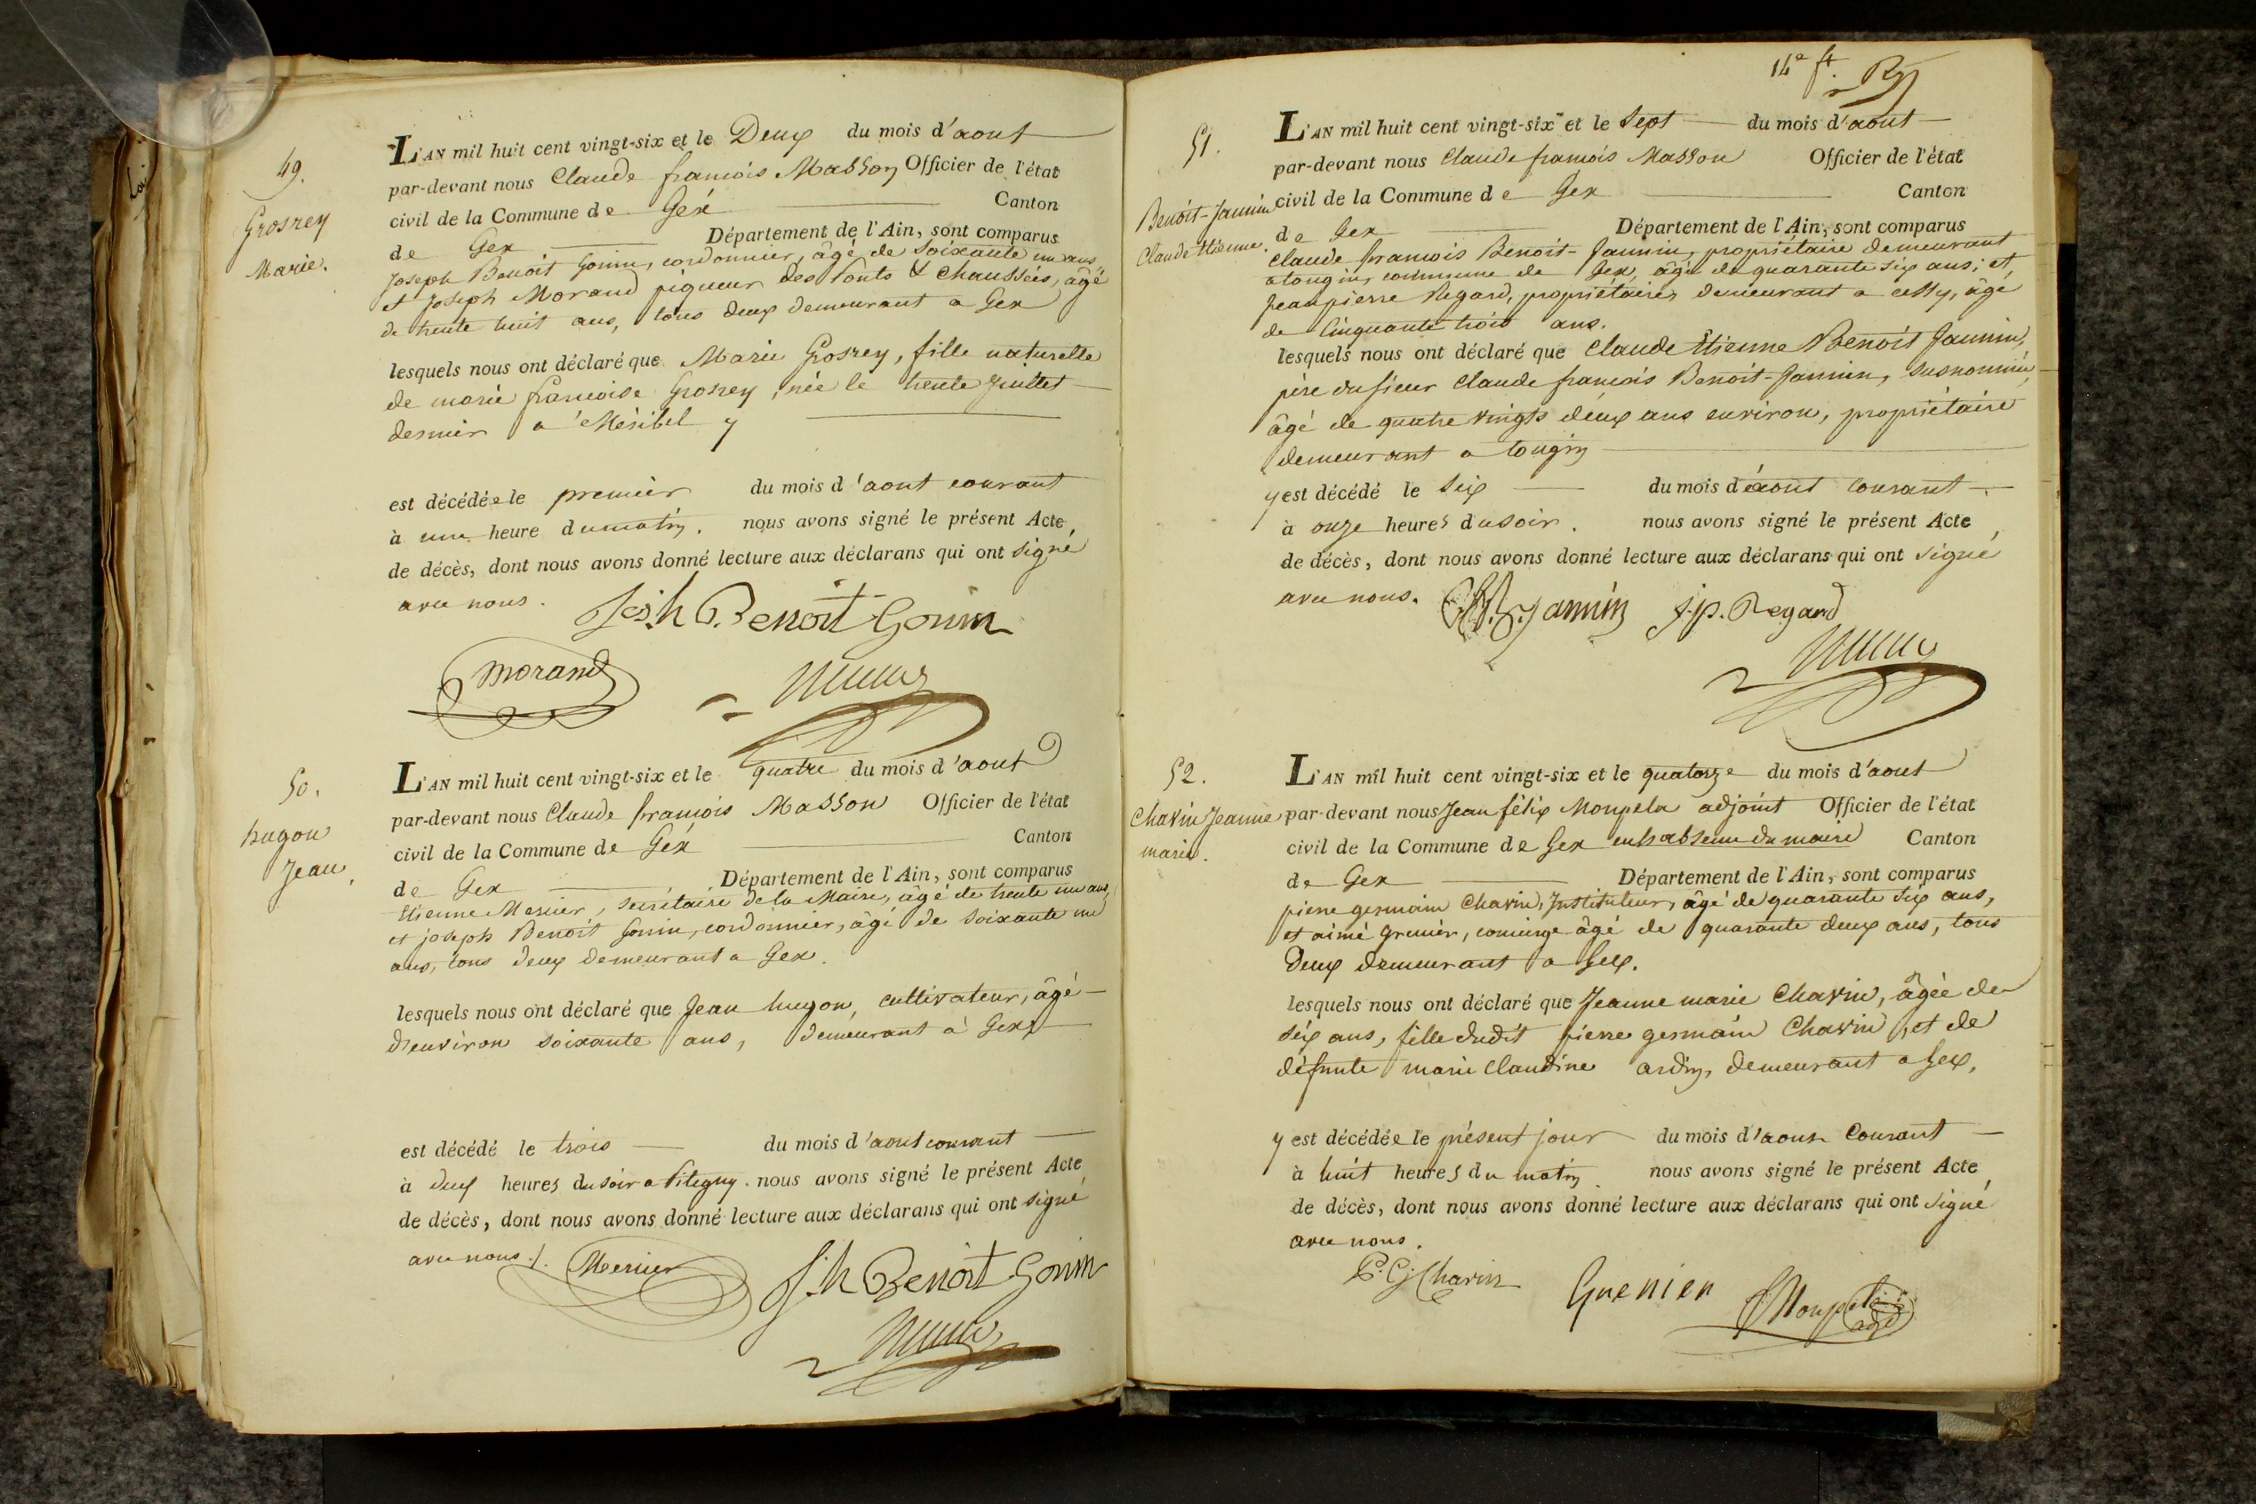 49.
Grosrey
Marie.
L'AN mil huit cent vingt-six et le Deux du mois d'aout
par-devant nous Claude francois Masson Officier de l'état
civil de la Commune de Gex Canton
de Gex Département de l'Ain, sont comparus
Joseph Benoit Gonin, cordonnier, âgé de soixante un ans
et Joseph Morand piqueur des Ponts & chaussées, âgé
de trente huit ans, tous deux demeurant a Gex
lesquels nous ont déclaré que Marie Grosrey, fille naturelle
de marie francoise Grosrey, née le trente Juillet
dernier a Méribel y
est décédée le premier du mois d'aout courant
à une heure du matin. nous avons signé le présent Acte
de décès, dont nous avons donné lecture aux déclarans qui ont signé
avec nous.
Jesh Benoit Gonin
Morand
50.
hugon
Jean,
L'AN mil huit cent vingt-six et le quatre du mois d'aout
par-devant nous Claude francois Masson Officier de l'état
civil de la Commune de Gex Canton
de Gex Département de l'Ain, sont comparus
Etienne Mercier, secrétaire de la Mairie, âgé de trente un ans,
et joseph Benoit Gonin, cordonnier, âgé de soixante un
ans, tous deux demeurant a Gex.
lesquels nous ont déclaré que Jean hugon, cultivateur, âgé
d'environ soixante ans, demeurant à Gex
est décédé le trois du mois d'aout courant
à deux heures du soir a Pitegny. nous avons signé le présent Acte
de décès, dont nous avons donné lecture aux déclarans qui ont signé
avec nous ./. Mercier
J.h Benoit Gonin
14e ft.
51.
Benoit-Jannin
Claude Etienne.
L'AN mil huit cent vingt-six et le Sept du mois d'aout
par-devant nous Claude francois Masson Officier de l'état
civil de la Commune de Gex Canton
de Gex Département de l'Ain, sont comparus
Claude francois Benoit-Jannin, propriétaire demeurant
a tougin, commune de Gex, âgé de quarante six ans; et
Jean pierre Regard, propriétaire, demeurant a cessy, âgé
de Cinquante trois ans.
lesquels nous ont déclaré que Claude Etienne Benoit Jannin,
père du sieur Claude francois Benoit-Jannin, susnommé
âgé de quatre vingts deux ans environ, propriétaire
demeurant a tougin
y est décédé le Six du mois d'aout courant
à onze heures du soir. nous avons signé le présent Acte
de décès, dont nous avons donné lecture aux déclarans qui ont signé
avec nous. Jannin J.p. Regard
52.
Chavin Jeanne
marie.
L'AN mil huit cent vingt-six et le quatorze du mois d'aout
par-devant nous Jean félix Monpela adjoint Officier de l'état
civil de la Commune de Gex en l'absence du maire Canton
de Gex Département de l'Ain, sont comparus
pierre germain Chavin, Instituteur, âgé de quarante six ans,
et aimé Grenier, concierge âgé de quarante deux ans, tous
deux demeurant a Gex.
lesquels nous ont déclaré que Jeanne marie Chavin, âgée de
six ans, fille dudit pierre germain Chavin, et de
défunte marie Claudine ardin, demeurant a Gex,
y est décédée le présent jour du mois d'aout Courant
à huit heures du matin. nous avons signé le présent Acte
de décès, dont nous avons donné lecture aux déclarans qui ont signé
avec nous.
P. G. Chavin Grenier Monpela adjt